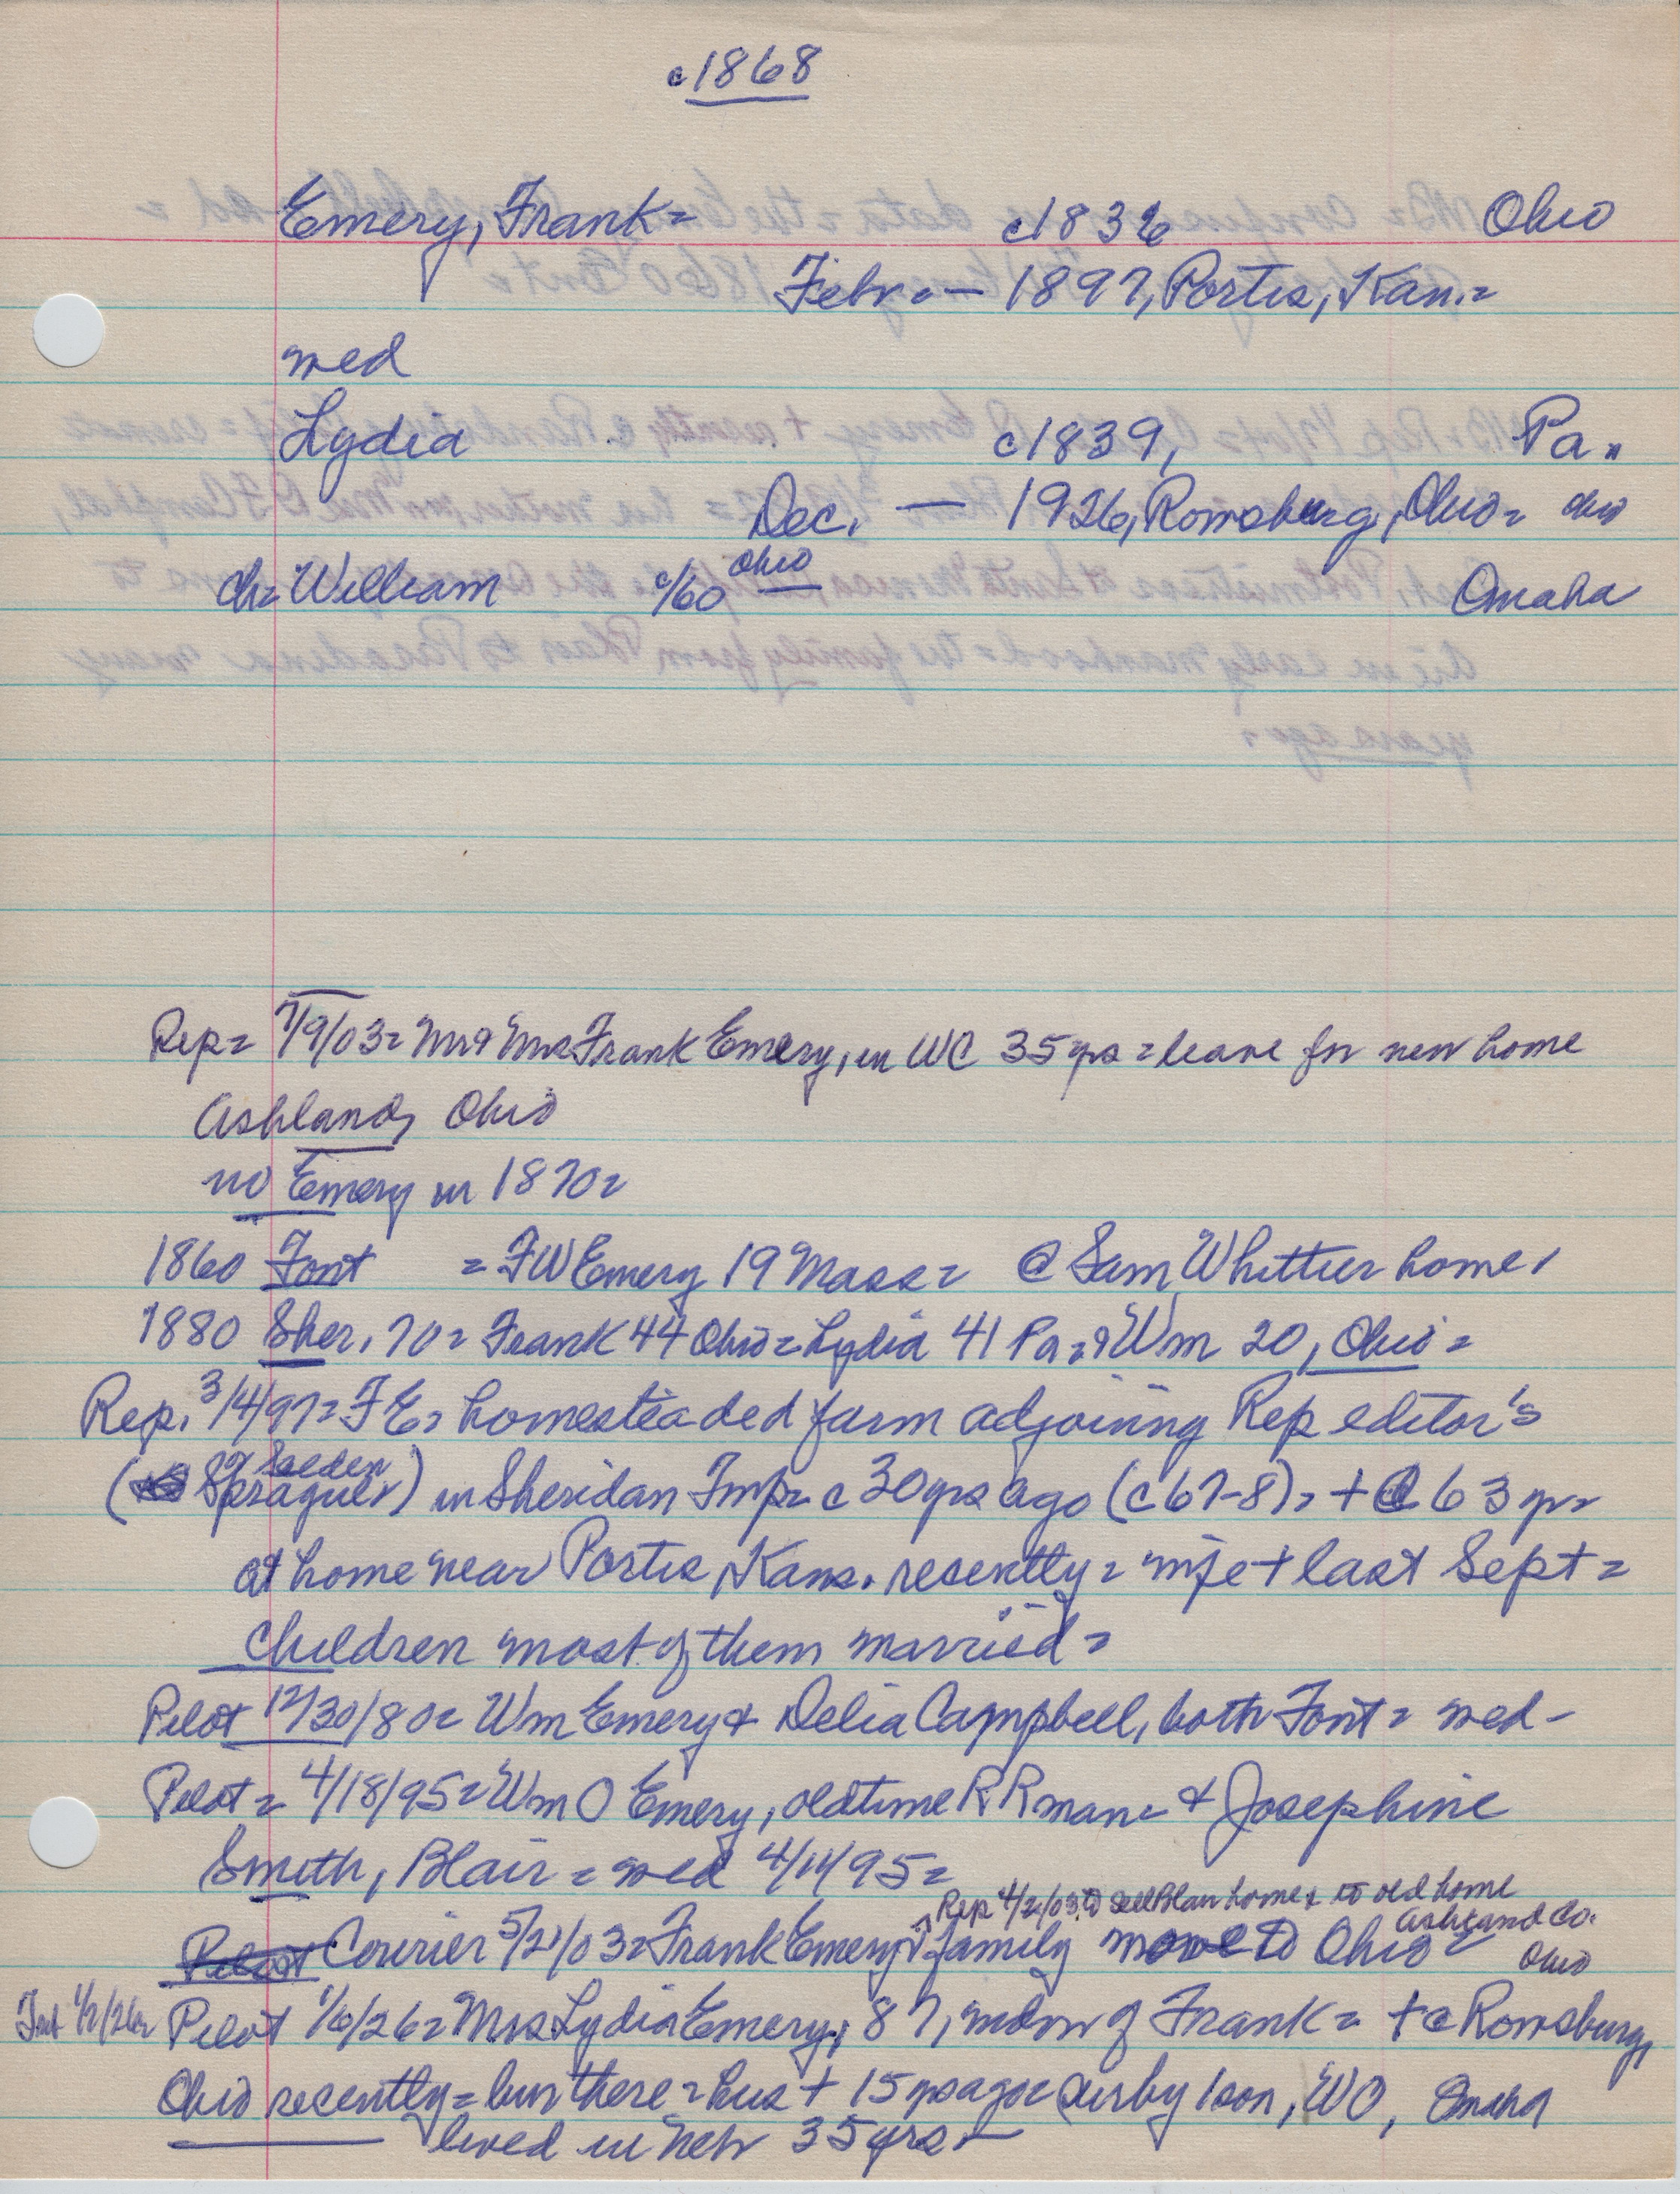 c1868
Emery, Frank= c1836 Ohio
Febr.=— 1897, Portis, Kan.=
med
Lydia c1839, Pa.
Dec. — 1926, Romsburg, Ohio= ohio
ch= William c/60 Ohio Omaha
Rep= 7/9/03= Mr & Mrs Frank Emery, in WC 35 yrs = leave for new home
Ashland, Ohio
no Emery in 1870=
1860 Font = FW Emery 19 Mass= @ Sam Whittier home,
1880 Sher, 70= Frank 44 Ohio= Lydia 41 Pa.= & Wm 20, Ohio=
Rep. 3/4/97= FE= homesteaded farm adjoining Rep editor's
(Sprague) in Sheridan Tmp= c 30 yrs ago (c67-8)= + @ 63 yr=
at home near Portis, Kans. recently= wife + last Sept=
children most of them married=
Pilot 12/30/80= Wm Emery & Delia Campbell, both Font= med-
Pilot= 4/18/95= Wm O Emery, oldtime RR man= & Josephine
Smith, Blair= med 4/11/95=
Rep 4/2/03 to sell Blair home & to old home
Ashland Co.
Ohio
Pilot Courier 5/21/03= Frank Emery & family move to Ohio
Pilot 1/6/26= Mrs Lydia Emery, 87, widow of Frank= + @ Romsburg,
Ohio recently= bur there= hus + 15 yrs ago= sur by 1 son, WO, Omaha
lived in Neb 35 yrs.—